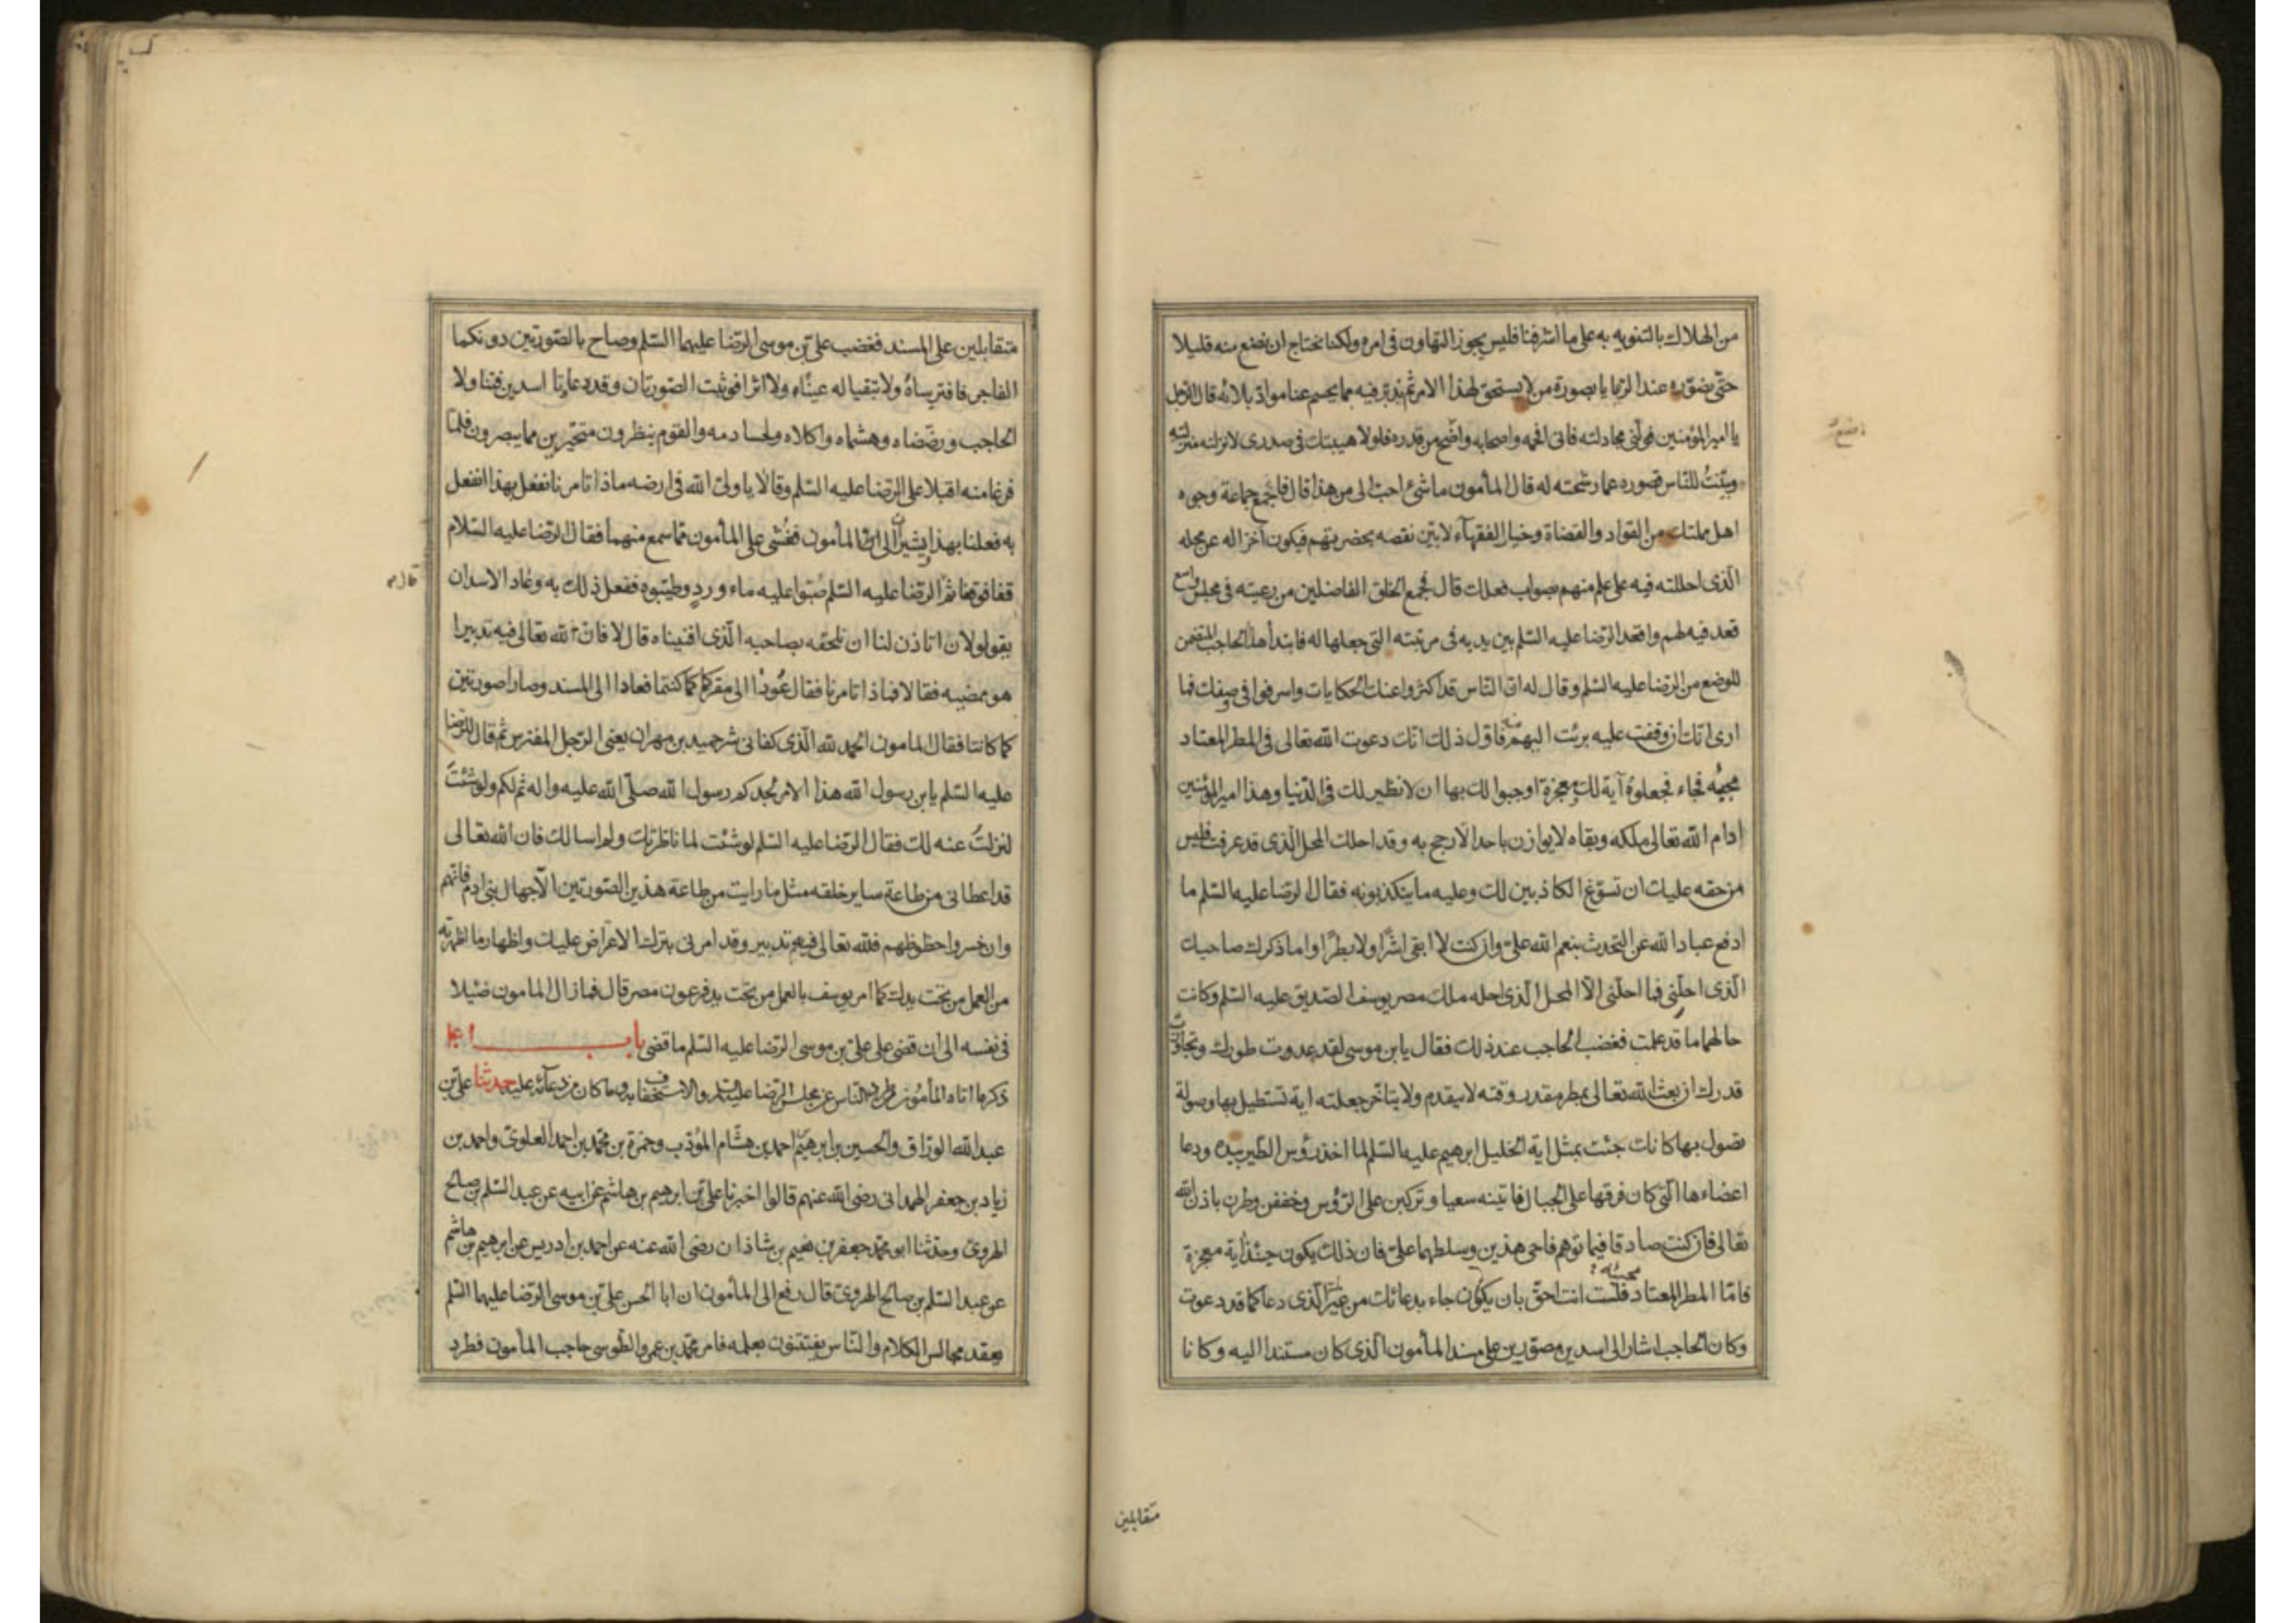 من الهلاك بالتنويه به على ما اشرفنا فليس يجوز التهاون فى امره ولكنا نحتاج ان نضع منه قليلا
حتى نصوّره عند الرعايا بصورة من لا يستحق لهذا الامر ثم ندبّر فيه بما يحسم عنا موادّ بلائه قال الرجل
يا امير المؤمنين فولّنى مجادلته فانى افحمه واصحابه واضع من قدره فلولا هيبتك فى صدرى لانزلته منزلته
وبيّنتُ للنّاس قصوره عما رشحته له قال المأمون ما شئ احبّ الى من هذا قال فاجمع جماعة وجوه
اهل مملكتك من القواد والقضاة وخيار الفقهاء لابيّن نقصه بحضرتهم فيكون اخذا له عن محله
الّذى احللته فيه على علم منهم بصواب فعلك قال فجمع الخلق الفاضلين من رعيته فى مجلس واسع
قعد فيه لهم واقعد الرّضا عليه السّلم بين يديه فى مرتبته التى جعلها له فابتدأ هذا الحاجب المتضمن
للوضع من الرّضا عليه السّلم وقال له انّ النّاس قد اكثروا عنك الحكايات واسرفوا فى وصفك فما
ارى انّك ان وقفت عليه برئت اليهم منه فاوّل ذلك انّك دعوت الله تعالى فى المطر المعتاد
مجيئه فجاء فجعلوه آية لك ومعجزة اوجبوا لك بها ان لا نظير لك فى الدّنيا وهذا امير المؤمنين
ادام الله تعالى ملكه وبقاه لا يوازن باحد الّا رجح به وقد احلك المحل الّذى قد عرفت فليس
من حقه عليك ان تسوّغ الكاذبين لك وعليه ما يتكذبونه فقال الرّضا عليه السّلم ما
ادفع عباد الله عن التّحدث بنعم الله علىّ وان كنت لا ابقى اشرًا ولا بطرًا واما ذكرك صاحبك
الّذى احلّنى فما احلّنى الّا المحل الّذى احله ملك مصر يوسف الصّديق عليه السّلم وكانت
حالهما ما قد علمت فغضب الحاجب عند ذلك فقال يابن موسى لقد عدوت طورك وتجاوزت
قدرك ان بعث الله تعالى بمطر مقدر وقته لا يتقدم ولا يتاخّر جعلته اية تستطيل بها وصولة
تصول بها كانك جئت بمثل اية الخليل ابرهيم عليه السّلم لما اخذ رؤس الطّير بيده ودعا
اعضاءها الّتى كان فرقها على الجبال فاتينه سعيا وتركبن على الرّؤس وخفقن وطرن باذن الله
تعالى فان كنت صادقا فيما توهم فاحى هذين وسلطهما علىّ فان ذلك يكون حينئذ اية معجزة
فامّا المطر المعتاد مجيئه فلست انت احقّ بان يكون جاء بدعائك من غيرك الّذى دعا كما قد دعوت
وكان الحاجب اشار الى اسدين مصوّرين على مسند المأمون الّذى كان مستندا اليه وكانا
متقابلين
متقابلين على المسند فغضب علىّ بن موسى الرّضا عليهما السّلم وصاح بالصّورتين دونكما
الفاجر فافترساهُ ولا تبقيا له عينًا ولا اثرا فوثبت الصّورتان وقد عادتا اسدين فتناولا
الحاجب ورضّضاه وهشماه واكلاه ولحسا دمه والقوم ينظرون متحيّرين مما يبصرون فلمّا
فرغا منه اقبلا على الرّضا عليه السّلم وقالا يا ولىّ الله فى ارضه ماذا تامرنا نفعل بهذا انفعل
به فعلنا بهذا يشيران الى المأمون فغُشى على المأمون مما سمع منهما فقال الرّضا عليه السّلام
قفا فوقفا ثم قال الرّضا عليه السّلم صُبّوا عليه ماء وردٍ وطيّبوه ففعل ذلك به وعاد الاسدان
يقولان اتاذن لنا ان نلحقه بصاحبه الّذى افنيناه قال لا فانّ لله تعالى فيه تدبيرا
هو ممضيه فقالا فماذا تامرنا فقال عُودا الى مقركما كما كنتما فعادا الى المسند وصارا صورتين
كما كانتا فقال المامون الحمد لله الّذى كفانى شر حميد بن مهران يعنى الرّجل المفترس ثم قال للرّضا
عليه السّلم يابن رسول الله هذا الامر لجدكم رسول الله صلّى الله عليه واله ثم لكم ولو شئت
لنزلتُ عنه لك فقال الرّضا عليه السّلم لو شئت لما ناظرتك ولم اسالك فان الله تعالى
قد اعطانى من طاعة ساير خلقه مثل ما رايت من طاعة هذين الصّورتين الّا جهال بنى ادم فانهم
وان خسروا حظوظهم فلله تعالى فيهم تدبير وقد امرنى بترك الاعراض عليك واظهار ما اظهرته
من العمل من تحت يدك كما امر يوسف بالعمل من تحت يد فرعون مصر قال فما زال المامون ضئيلا
فى نفسه الى ان قضى على علىّ بن موسى الرّضا عليه السّلم ما قضى باب ٤١
ذكر ما اتاه المأمون من طرد النّاس عن مجلس الرّضا عليه السّلم والاستخفاف به وما كان من دعائه عليه حدثنا علىّ بن
عبد الله الورّاق والحسين بن ابرهيم بن احمد بن هشام المؤدّب وحمزة بن محمّد بن احمد العلوىّ واحمد بن
زياد بن جعفر الهمدانى رضى الله عنهم قالوا اخبرنا علىّ بن ابرهيم بن هاشم عن ابيه عن عبد السّلم بن صالح
الهروىّ وحدّثنا ابو محمّد جعفر بن نعيم بن شاذان رضى الله عنه عن احمد بن ادريس عن ابرهيم بن هاشم
عن عبد السّلم بن صالح الهروىّ قال رفع الى المأمون ان ابا الحسن علىّ بن موسى الرّضا عليهما السّلم
يعقد مجالس الكلام والنّاس يفتتنون بعلمه فامر محمّد بن عمرو الطّوسى حاجب المأمون فطرد